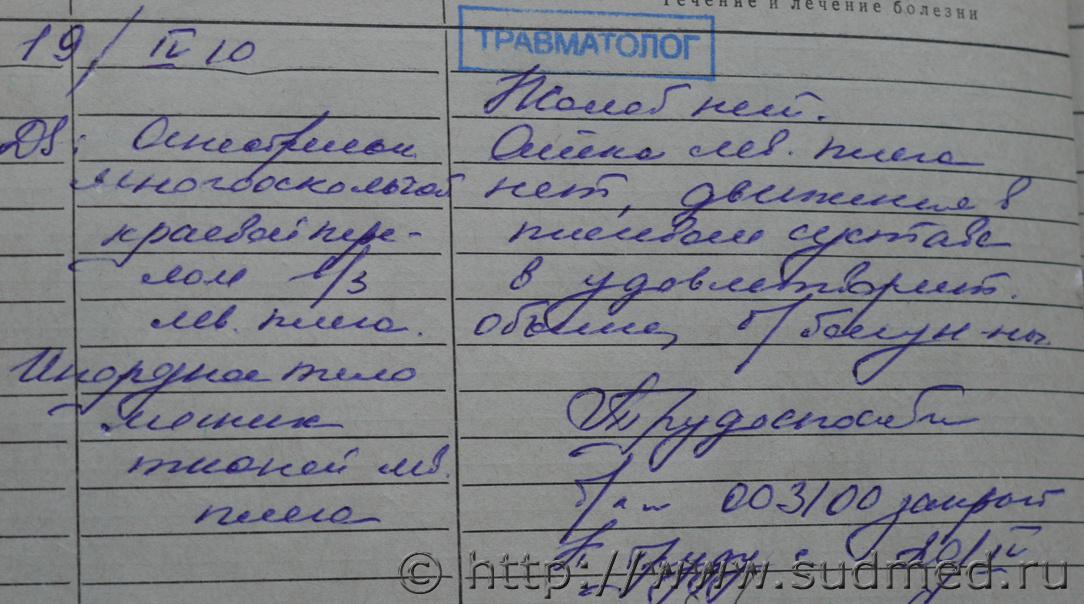 Течение и лечение болезни
19/IV 10
ТРАВМАТОЛОГ
Ds: Огнестрельн.
многооскольчат
краевой пере-
лом в/3
лев. плеча.
Инородное тело
мягких
тканей лев.
плеча
Жалоб нет.
Отёка лев. плеча
нет, движения в
плечевом суставе
в удовлетворит.
объёме, б/болезн-ны.
Трудоспособен
б/л 003100 закрыт
к труду с 20/IV
© http://www.sudmed.ru